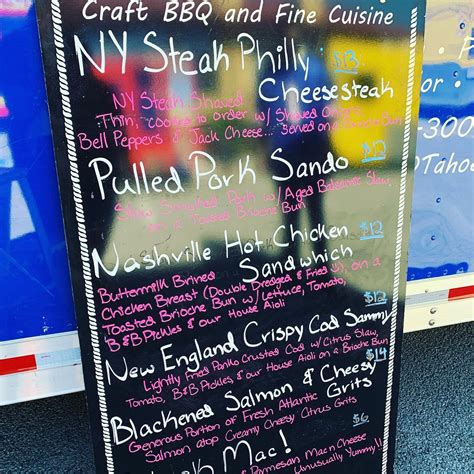 Craft BBQ and Fine Cuisine
NY Steak Philly $13
Cheesesteak
NY Steak Shaved
Thin, cooked to order w/ Shaved
Bell Peppers & Jack Cheese... served on a Brioche Bun
Pulled Pork Sando $12
Slow Smoked Pork w/ Aged Balsamic Slaw,
on a Toasted Brioche Bun
Nashville Hot Chicken $12
Sandwhich
Buttermilk Brined
Chicken Breast (Double Dredged & Fried), on a
Toasted Brioche Bun w/ Lettuce, Tomato,
B & B Pickles & our House Aioli
$12
New England Crispy Cod Sammy
Lightly Fried Panko Crusted Cod w/ Citrus Slaw,
Tomato, B&B Pickles & our House Aioli on a Brioche Bun
$14
Blackened Salmon & Cheesy
Grits
Generous Portion of Fresh Atlantic
Salmon atop Creamy Cheesy Citrus Grits
$6
Mac!
Parmesan Mac n Cheese
Unusually Yummy!!
-300
OTaho